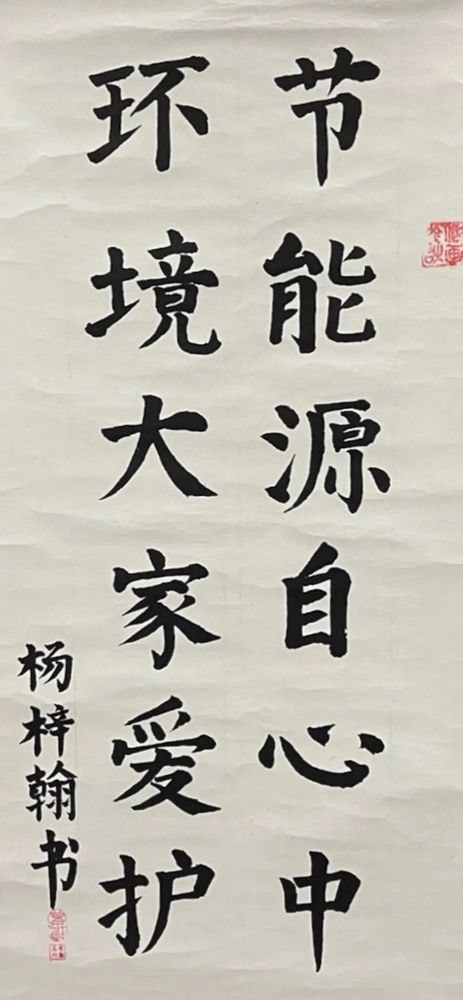 节能源自心中
环境大家爱护
杨梓翰书